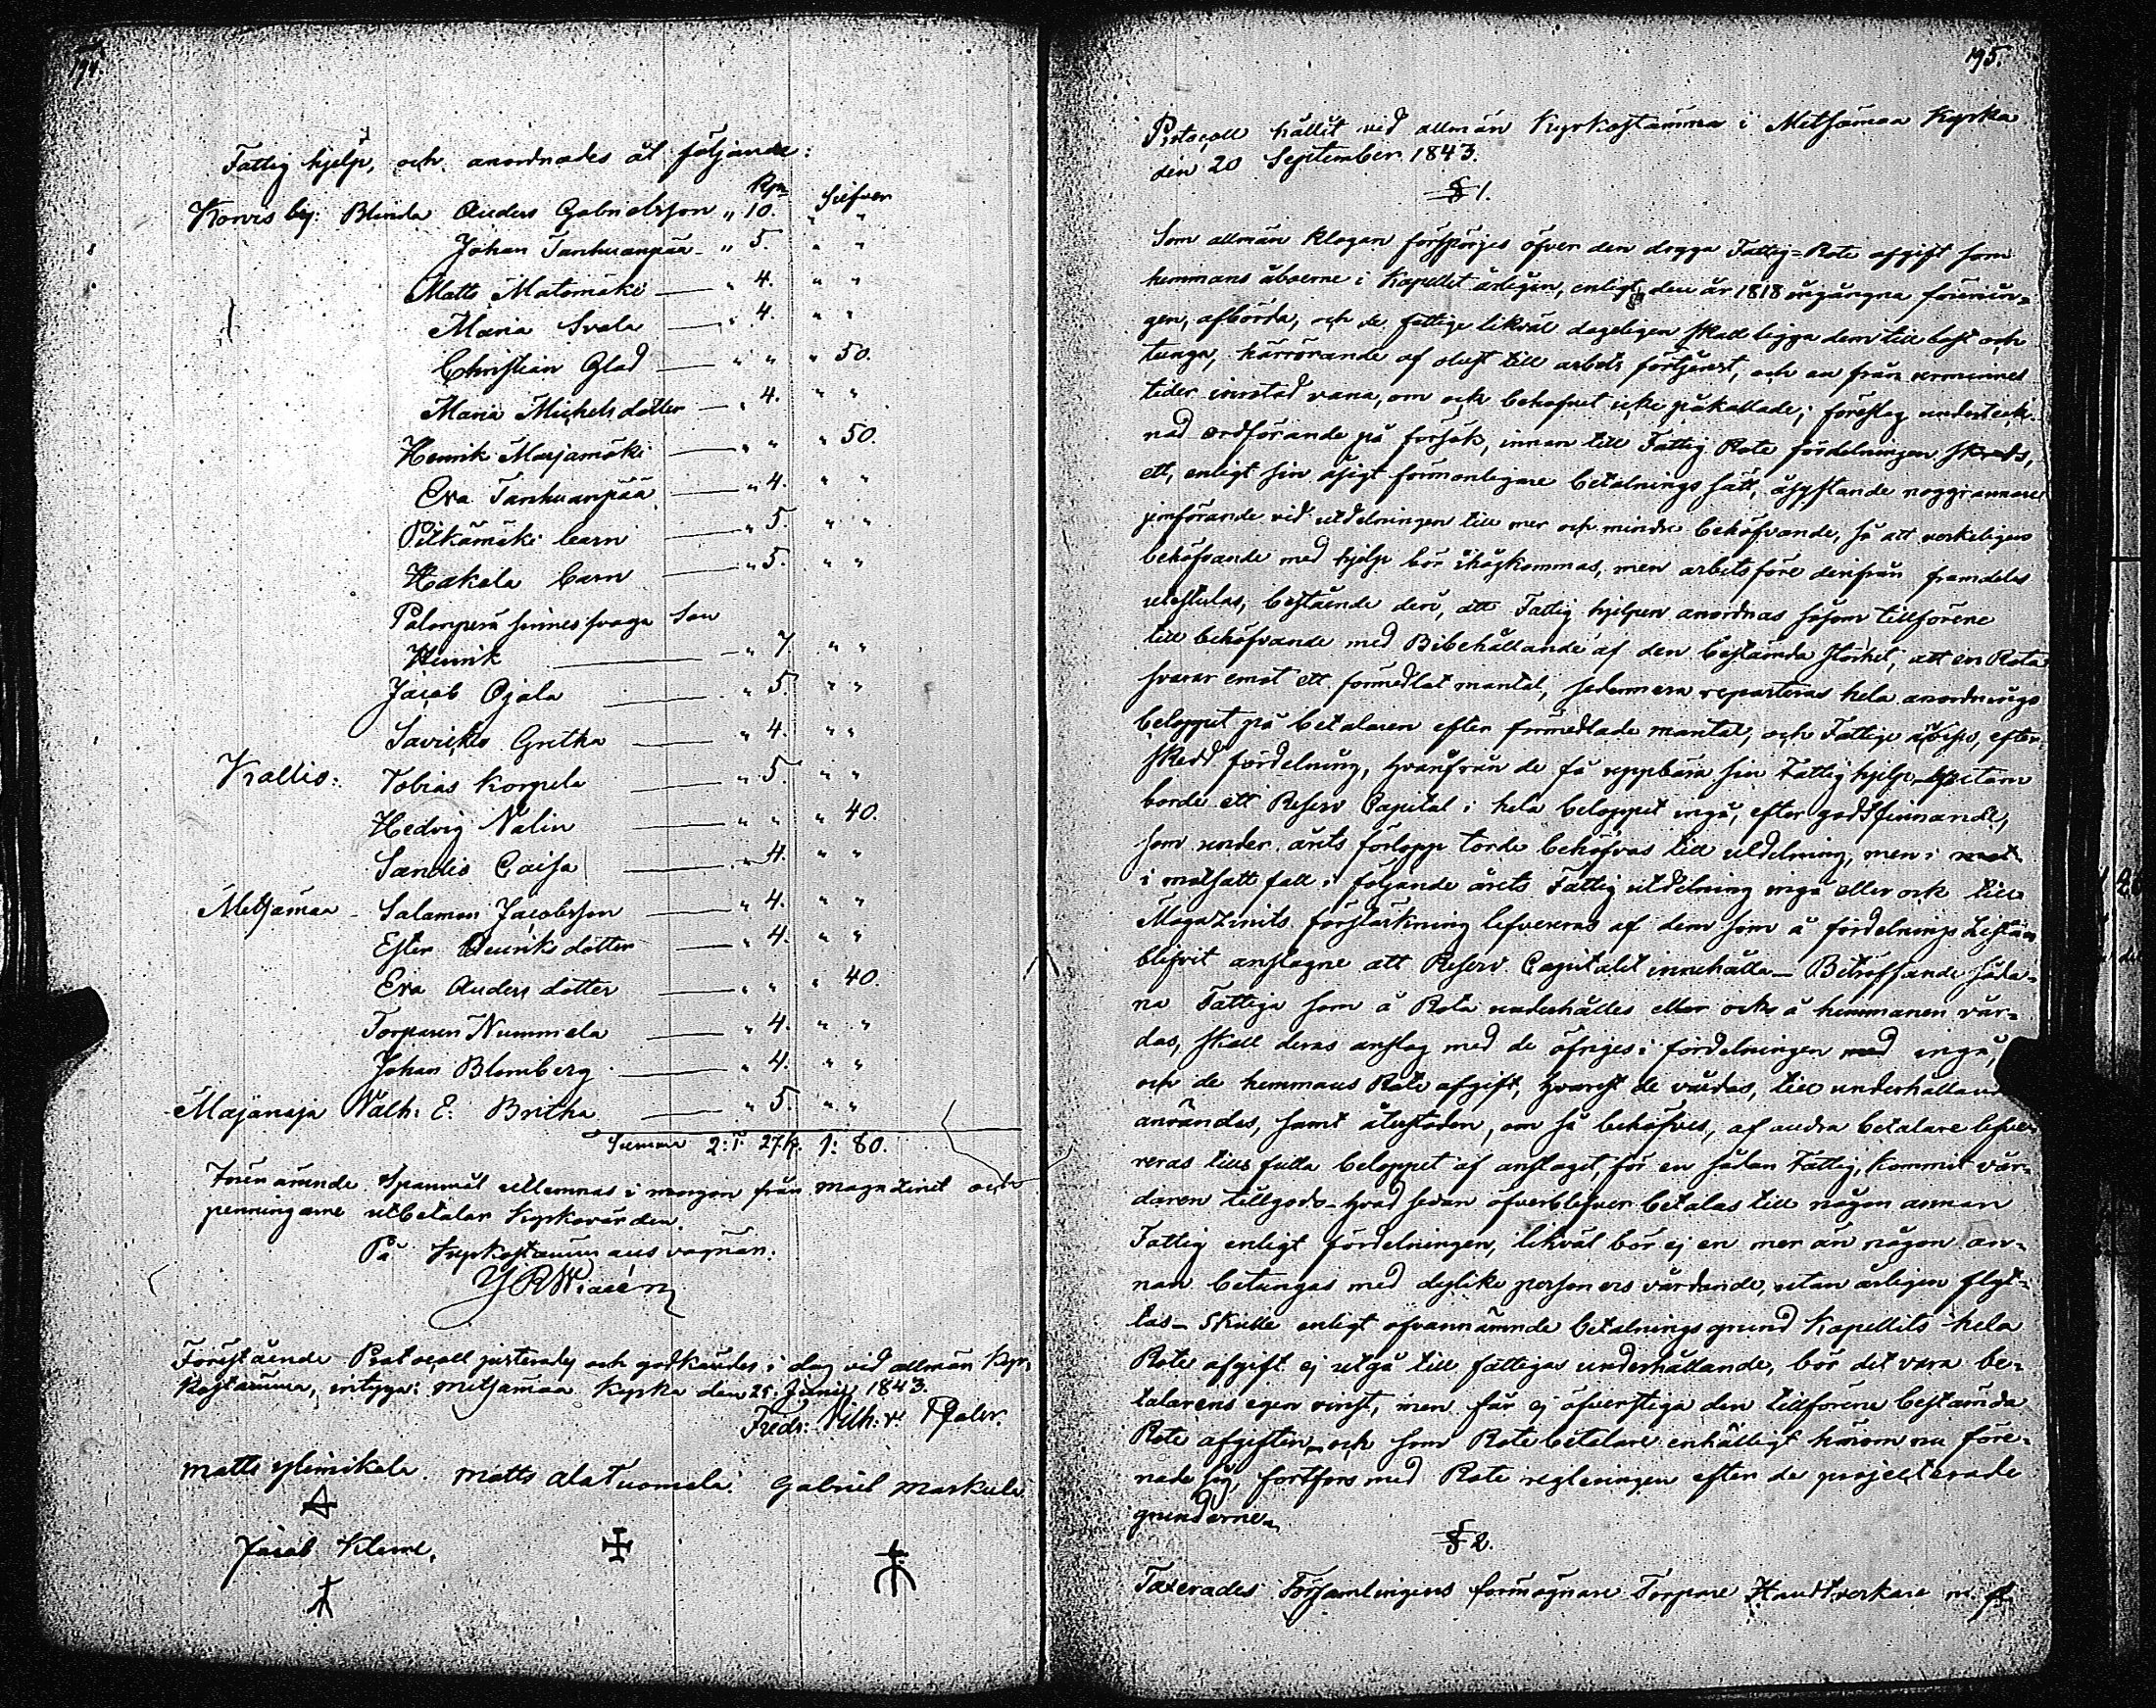 194.
Fattig hjelp, och anordnades åt följande:
Kpr Silfver
Korvis by: Blinda Anders Gabrielsson „ 10. „ „
Johan Tanhuanpää — „ 5 „ „
Matts Matomäki — „ 4. „ „
Maria Svala — „ 4. „ „
Christian Glad — „ „ „ 50.
Maria Michelsdotter — „ 4. „ „
Henrik Marjamäki — „ „ „ 50.
Eva Tanhuanpää — „ 4. „ „
Pitkämäki barn — „ 5. „ „
Hakala barn — „ 5. „ „
Palonperä sinnes svaga Son
Henrik — „ 7 „ „
Jacob Ojala — „ 5. „ „
Savickko Gretha — „ 4. „ „
Kallio: Tobias Korpela — „ 5 „ „
Hedvig Nalin — „ „ „ 40.
Sandis Caisa — „ 4. „ „
Metsämaa - Salamon Jacobsson — „ 4. „ „
Ester Henriksdotter — „ 4. „ „
Eva Anders dotter — „ „ „ 40.
Torparen Nummela — „ 4. „ „
Johan Blomberg — „ 4. „ „
Majanoja Walb: E: Britha — „ 5. „ „
Summa 2: T. 27 k. 1: 80.
Spanmål utlemnas i morgon från magazinet och
penningarne utbetalar Kyrkovärden.
På Kyrkostämmans vägnar.
Förestående Protocoll justerades och godkändes i dag vid allmän Kyr-
kostämma, intyga: Metsämaa Kyrka den 25. Junii 1843.
Fredr: Wilh: v. Pfaler.
Matts Ylimikola. Matts Alatuomela Gabriel Markula
Jacob Kleme.
195.
Protocoll hållit vid allmän Kyrkostämma i Metsämaa Kyrka
den 20 September 1843.
§ 1.
Som allmän klagan försporjes öfver den dryga Fattig-Rote afgift som
hemmans åboerne i Kapellet årligen, enligt den år 1818 ingångna förenin-
gen, afbörda, och de fattige likväl dageligen skall ligga dem till last och
tunga, härrörande af olust till arbets förtjenst, och en från urminnes
tider inrotad vana, om och behofvet icke påkallade; föreslog underteck-
nad ordförande på försök, innan till Fattig Rote fördelningen skreds,
ett, enligt sin åsigt förmonligare betalnings sätt, åsyftande noggrannare
jemförande vid utdelningen till mer och mindre behöfvande, så att verkeligen
behöfvande med hjelp bör ihågkommas, men arbetsföre derifrån framdeles
uteslutas, bestående deri, att Fattig hjelpen anordnas såsom tillförene
till behöfvande med Bibehållande af den bestämda storhet, att en Rota
svarar emot ett förmedlat mantal, sedermera reparteras hela anordnings
beloppet på betalaren efter förmedlade mantal, och Fattige efter
skedd fördelning, hvarifrån de få uppbära sin Fattig hjelp.
borde ett Reserv Capital i hela beloppet ingå, efter godtfinnande,
som under årets förlopp torde behöfvas till utdelning, men i
i motsatt fall i följande årets Fattig utdelning ingå eller ock till
Magazinets förstärkning lefvereras af dem som å fördelnings Listan
blifvit anslagne att Reserv Capitalet innehålla — Beträffande såda-
na Fattiga som å Rota underhålles eller ock å hemmanen vår-
das, skall deras anslag med de öfriges i fördelningen ingå,
och de hemmans Rote afgift, hvarest de vårdas, till underhållande
användes, samt återstoden, om så behöfves, af andra betalare lefve-
reras tills fulla beloppet af anslaget, för en sådan Fattig, kommit vår-
daren tillgodo — hvad sedan öfverblifver betalas till någon annan
Fattig enligt fördelningen, likväl bör ej en mer än någon an-
nan betungas med deylike personers vårdande, utan årligen flyt-
tas — Skulle enligt ofvannämnde betalnings grund Kapellets hela
Rote afgift ej utgå till fattigas underhållande, bör det vara be-
talarens egen vinst, men får ej öfverstiga den tillförene bestämda
Rote afgiften — och som Rotebetalare enhälligt härom nu före-
nade sig, fortfors med Rote regleringen efter de projecterade
grunderne.
§ 2.
Taxerades Församlingens förmögnare Torpare Handtverkare m. fl.